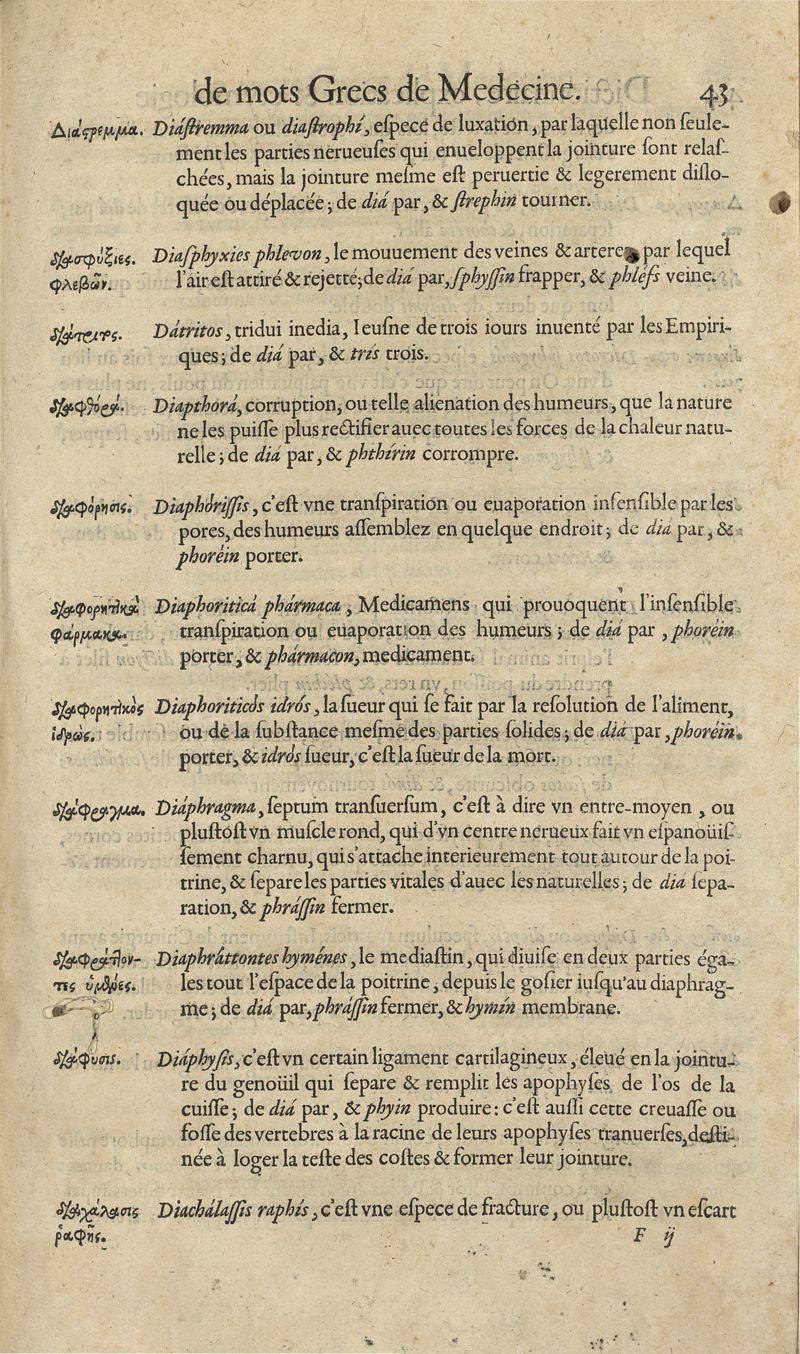 de mots Grecs de Medecine. 43
Διάςρεμμα. Diáſtremma ou diaſtrophí, eſpece de luxation, par laquelle non ſeule-
ment les parties nerueuſes qui enueloppent la jointure ſont relaſ-
chées, mais la jointure meſme eſt peruertie & legerement diſlo-
quée ou déplacée; de diá par, & ſtrephin tourner.
διασφύξιες. Diaſphyxies phlevon, le mouuement des veines & arteres par lequel
φλεβῶν. l'air eſt attiré & rejetté; de diá par, ſphyſſin frapper, & phléſs veine.
Dátritos, tridui inedia, Ieuſne de trois iours inuenté par les Empiri-
ques; de diá par, & trís trois.
διαφθορά. Diapthorá, corruption, ou telle alienation des humeurs, que la nature
ne les puiſſe plus rectifier auec toutes les forces de la chaleur natu-
relle; de diá par, & phthírin corrompre.
διαφόρησις. Diaphóriſſis, c'eſt vne tranſpiration ou euaporation inſenſible par les
pores, des humeurs aſſemblez en quelque endroit; de diá par, &
phoréin porter.
διαφορητικὰ Diaphoriticá phármaca, Medicamens qui prouoquent l'inſenſible
φάρμακα. tranſpiration ou euaporation des humeurs; de diá par, phoréin
porter, & phármacon, medicament.
διαφορητικὸς Diaphoriticòs idrós, la ſueur qui ſe fait par la reſolution de l'aliment,
ἱδρώς. ou de la ſubſtance meſme des parties ſolides; de diá par, phoréin
porter, & idròs ſueur, c'eſt la ſueur de la mort.
διάφραγμα. Diáphragma, ſeptum tranſuerſum, c'eſt à dire vn entre-moyen, ou
pluſtoſt vn muſcle rond, qui d'vn centre nerueux fait vn eſpanoüiſ-
ſement charnu, qui s'attache interieurement tout autour de la poi-
trine, & ſepare les parties vitales d'auec les naturelles; de diá ſepa-
ration, & phráſſin fermer.
διαφράττον- Diaphráttontes hyménes, le mediaſtin, qui diuiſe en deux parties éga-
τες ὑμένες. les tout l'eſpace de la poitrine, depuis le goſier iuſqu'au diaphrag-
me; de diá par, phráſſin fermer, & hymín membrane.
διάφυσις. Diáphyſis, c'eſt vn certain ligament cartilagineux, éleué en la jointu-
re du genoüil qui ſepare & remplit les apophyſes de l'os de la
cuiſſe; de diá par, & phyin produire: c'eſt auſſi cette creuaſſe ou
foſſe des vertebres à la racine de leurs apophyſes tranuerſes, deſti-
née à loger la teſte des coſtes & former leur jointure.
διαχάλασις Diachálaſſis raphís, c'eſt vne eſpece de fracture, ou pluſtoſt vn eſcart
ῥαφῆς. F ij